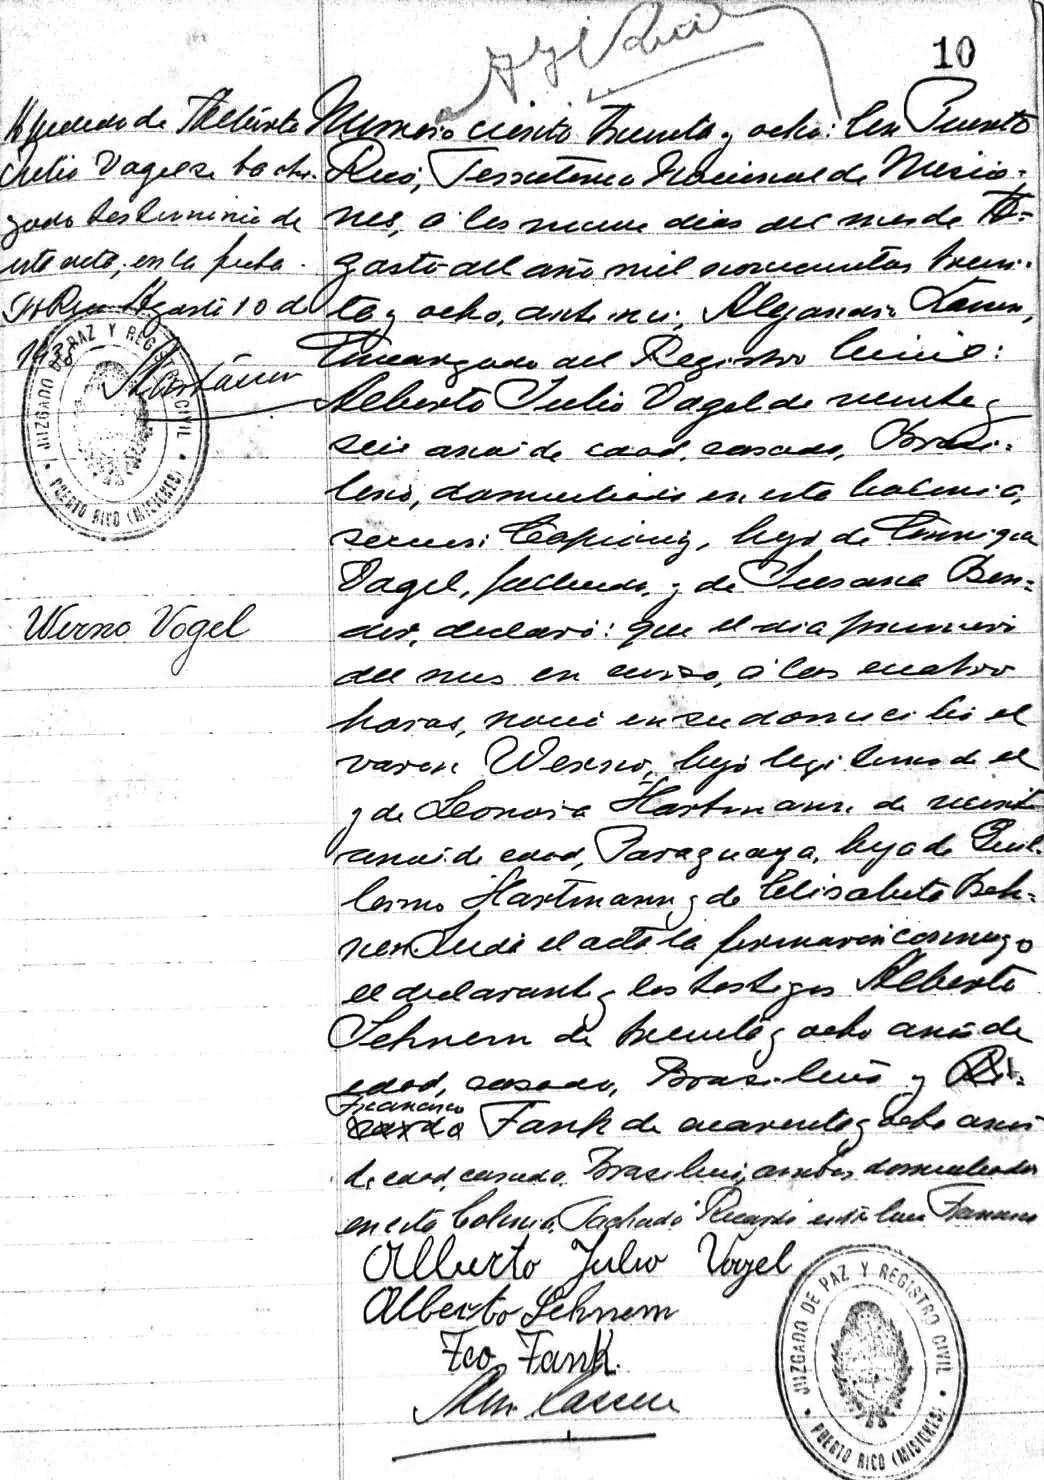 10
A pedido de Alberto
Julio Vogel se ha otor-
gado testimonio de
este acta, en la fecha.
Pto Rico Agosto 10 de
1938
JUZGADO DE PAZ Y REGISTRO CIVIL
PUERTO RICO (MISIONES)
Werno Vogel
Numero ciento treinta y ocho: En Puerto
Rico, Territorio Nacional de Misio-
nes, á los nueve dias del mes de A-
gosto del año mil novecientos trein-
ta y ocho, ante mi, Alejandro
Encargado del Registro Civil:
Alberto Julio Vogel de veinte y
seis años de edad, casado, Brasi-
lero, domiciliado en esta Colonia,
seccion Capiovy, hijo de Enrique
Vogel, fallecido, y de Susana Ben-
der, declaró: que el dia primero
del mes en curso, á las cuatro
horas, nació en su domicilio el
varon Werno, hijo legitimo de el
y de Leonora Hartmann, de veinte
años de edad, Paraguaya, hija de Guil-
lermo Hartmann y de Elisabeta
Leida el acta la firmaron conmigo
el declarante y los testigos Alberto
Schnem de treinta y ocho años de
edad, casado, Brasilero y Ri-
Francisco
cardo Fank de cuarenta y ocho años
de edad, casado, Brasilero, ambos domiciliados
en esta Colonia. Tachado Ricardo Francisco
Alberto Julio Vogel
Alberto Schnem
Fco Fank.
JUZGADO DE PAZ Y REGISTRO CIVIL
PUERTO RICO (MISIONES)